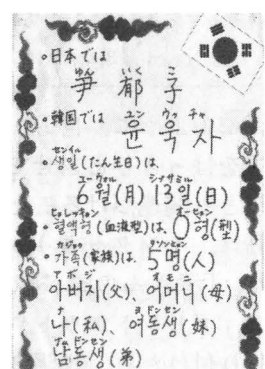 •日本では
ゆん いく こ
尹 郁 子
•韓国では ユン ウッ チャ
윤 욱 자
センイル
•생일(たん生日)は、
ユーウォル シナサミル
6월(月) 13일(日)
ヒョレッキョン オーヒョン
•혈액형(血液型)は、O형(型)
カジョク タソンミョン
•가족(家族)は、5명(人)
アボジ オモニ
아버지(父)、어머니(母)
ナ ヨドンセン
나(私)、여동생(妹)
ナムドンセン
남동생(弟)